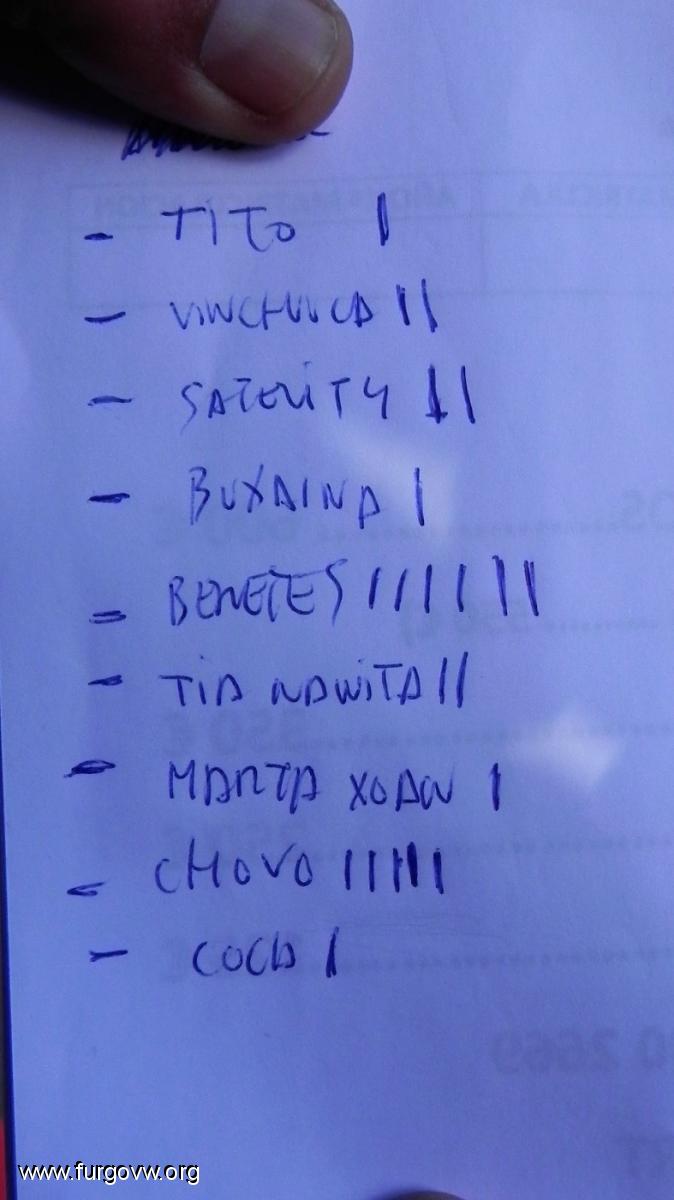 - TITO I
- VINCHUCA II
- SATELITY II
- BUXAINA I
- BENETES IIIIII
- TIA NAWITA II
- MARTA XOAN I
- CHOVO IIIII
- COCA I
www.furgovw.org